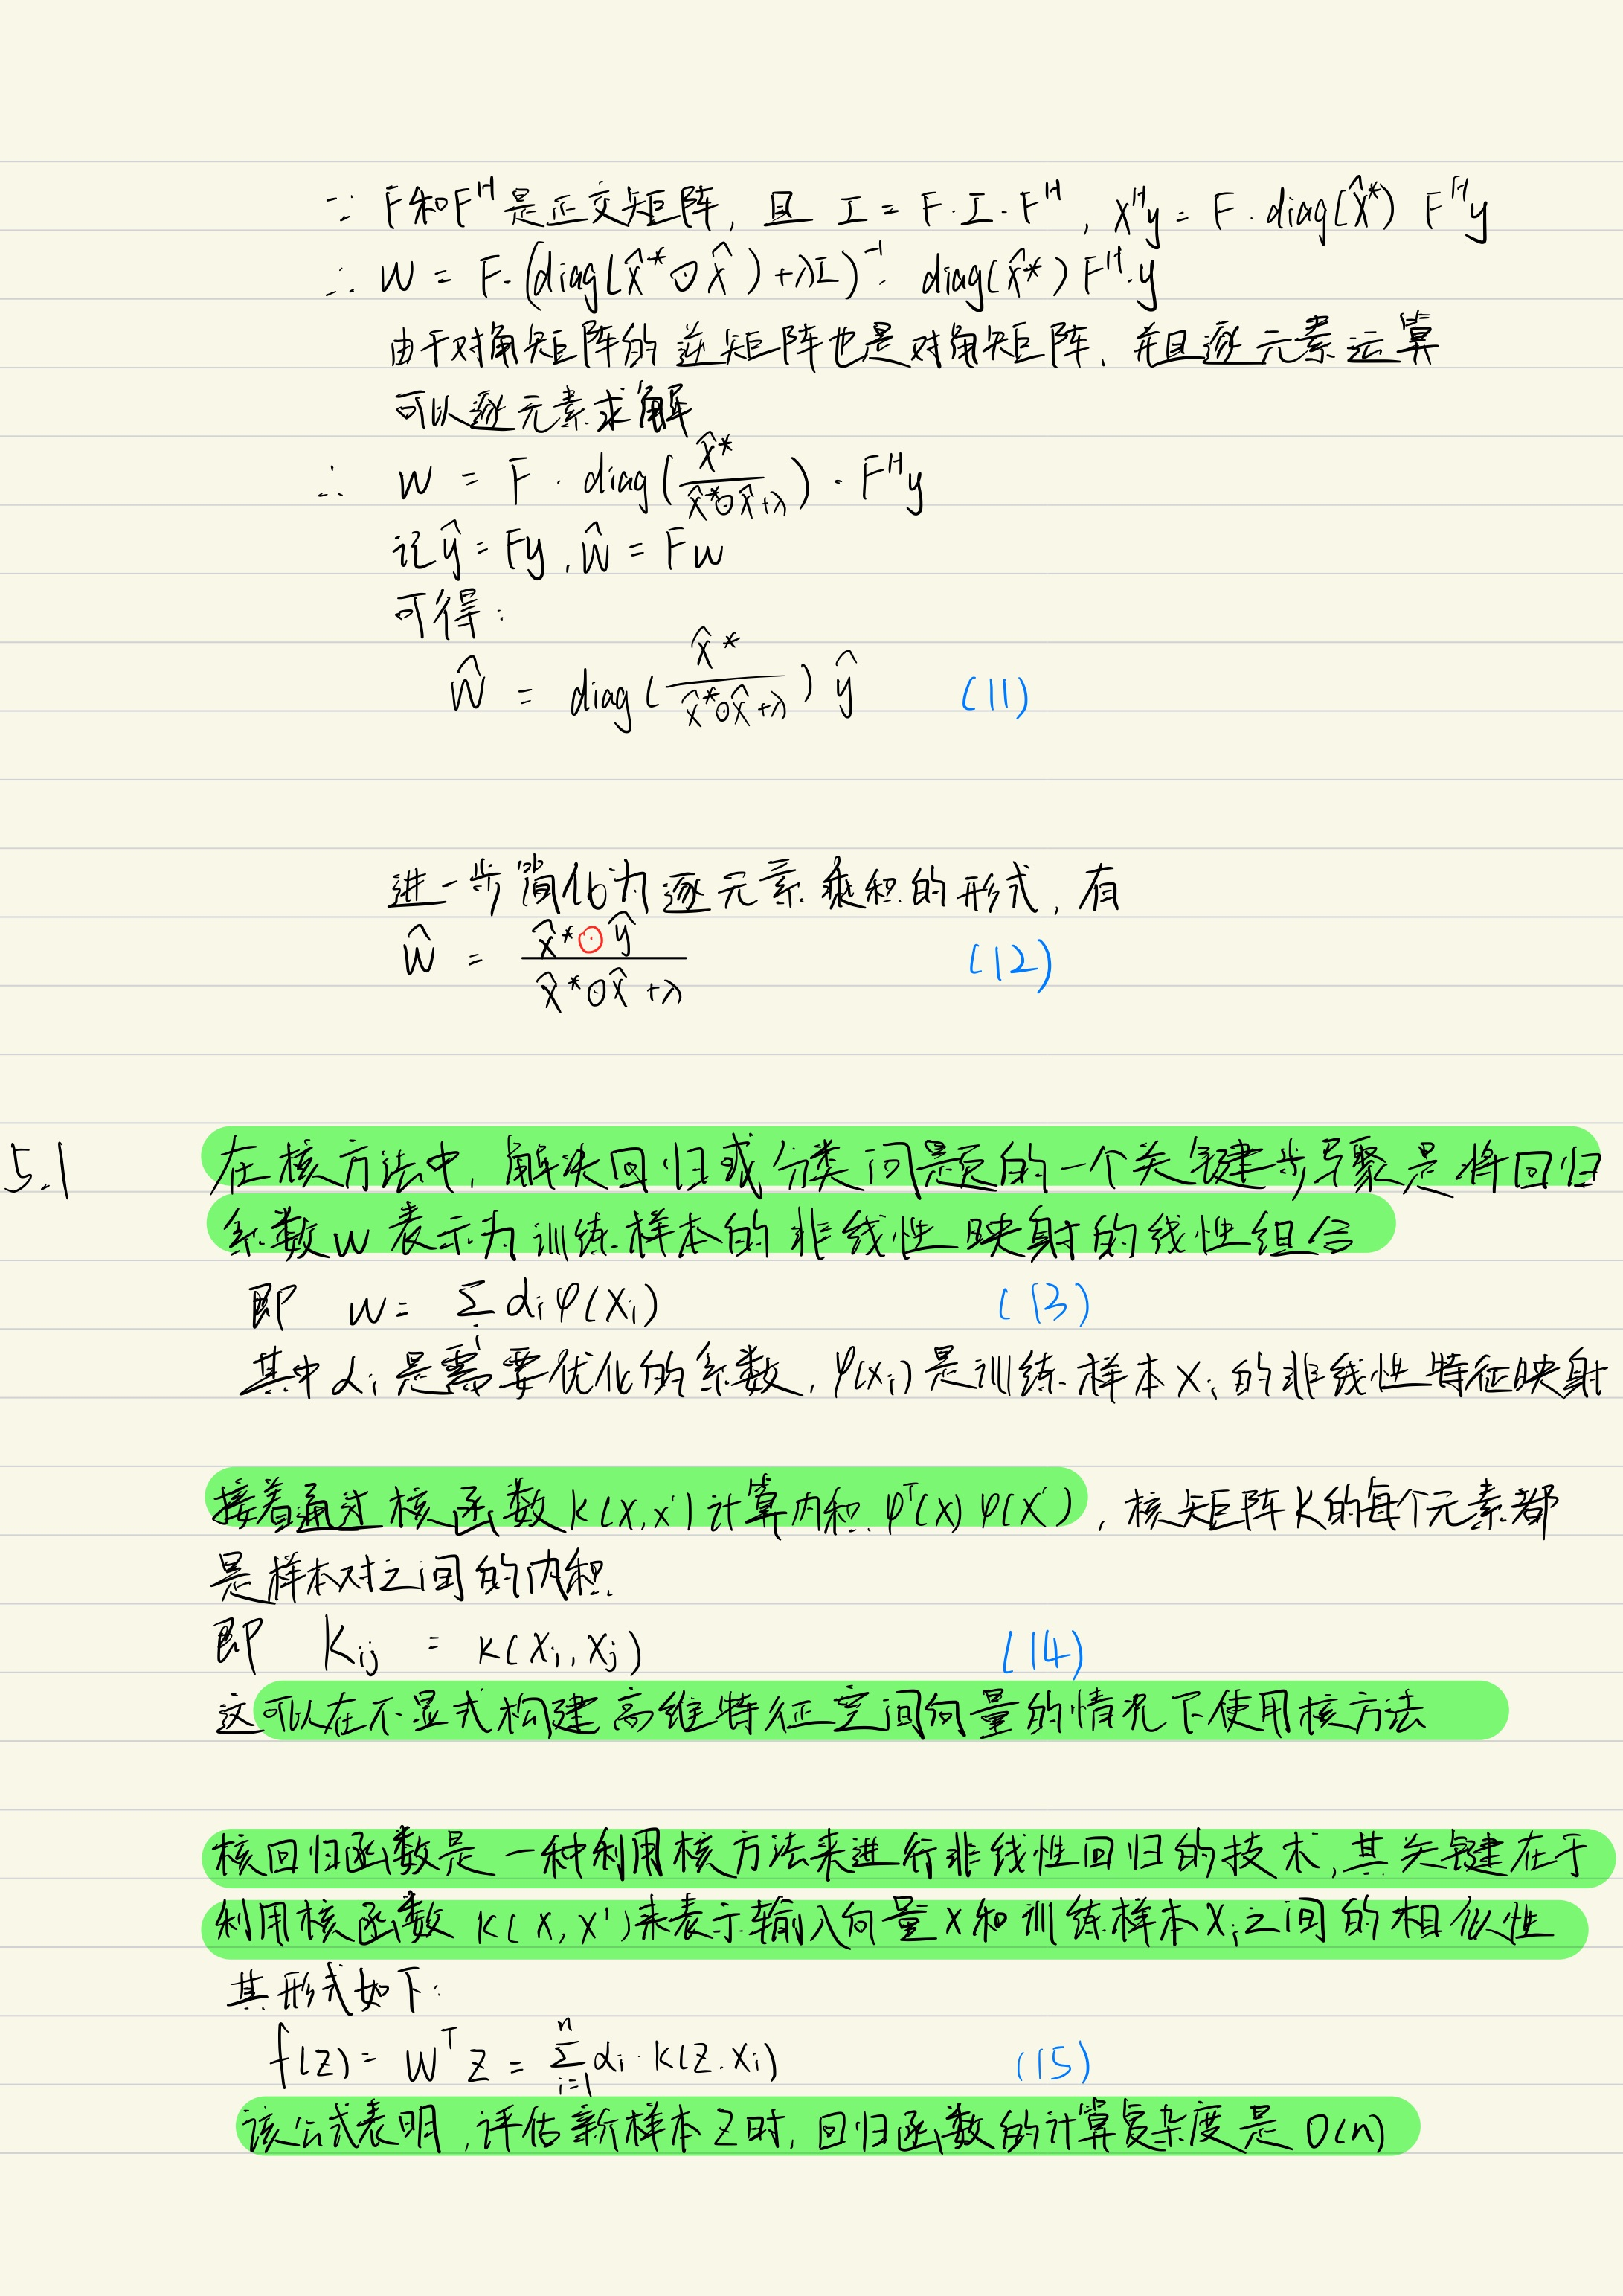 ∵ F和Fᴴ是正交矩阵, 且 I = F·I·Fᴴ, Xᴴy = F·diag(x̂*) Fᴴy
∴ w = F·(diag(x̂*⊙x̂)+λI)⁻¹· diag(x̂*)Fᴴ·y
由于对角矩阵的逆矩阵也是对角矩阵, 并且逐元素运算
可以逐元素求解
∴ w = F · diag(x̂*/(x̂*⊙x̂+λ)) · Fᴴy
记ŷ = Fy, ŵ = Fw
可得:
ŵ = diag(x̂*/(x̂*⊙x̂+λ)) ŷ (11)
进一步简化为逐元素乘积的形式, 有
ŵ = (x̂*⊙ŷ)/(x̂*⊙x̂+λ) (12)
5.1 在核方法中, 解决回归或分类问题的一个关键步骤是将回归
系数w表示为训练样本的非线性映射的线性组合
即 w = Σᵢ αᵢφ(xᵢ) (13)
其中αᵢ是需要优化的系数, φ(xᵢ)是训练样本xᵢ的非线性特征映射
接着通过核函数k(x,x')计算内积φᵀ(x)φ(x'), 核矩阵K的每个元素都
是样本对之间的内积.
即 Kᵢⱼ = k(xᵢ,xⱼ) (14)
这可以在不显式构建高维特征空间向量的情况下使用核方法
核回归函数是一种利用核方法来进行非线性回归的技术, 其关键在于
利用核函数k(x,x')来表示输入向量x和训练样本xᵢ之间的相似性
其形式如下:
f(z) = wᵀz = Σⁿᵢ₌₁ αᵢ·k(z.xᵢ) (15)
该公式表明, 评估新样本z时, 回归函数的计算复杂度是O(n)